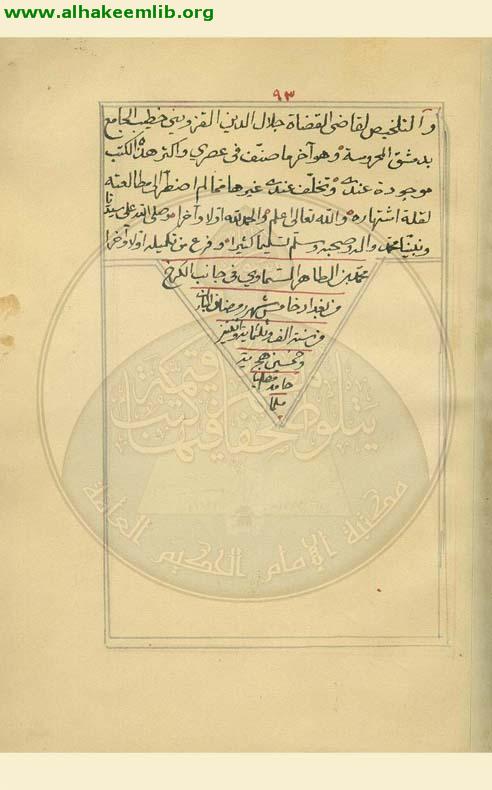 www.alhakeemlib.org
٩٣
و آ لتلخيص لقاضى القضاة جلال الدين القزويني خطيب الجامع
بدمشق المحروسة وهو آخر ما صنّف فى عصري واكثر هذه الكتب
موجودة عندي وتخلّف عندي غيرها ممالم اضطرّ الى مطالعته
لقلة اشتهاره والله تعالى اعلم والحمد لله اولا وآخرا وصلى الله على سيدنا
ونبيّنا محمد واله وصحبه وسلّم تسليما كثيرا وفرغ من تكميله اولا وآخرا
محمد بن الطاهر السماوي فى جانب الكرخ
من بغداد خامس شهر رمضان المبارك
من سنة الف وثلثمائة واثنين
وخمسين هجرية
حامدا مصليا
مسلما
مكتبة الإمام الحكيم العامة